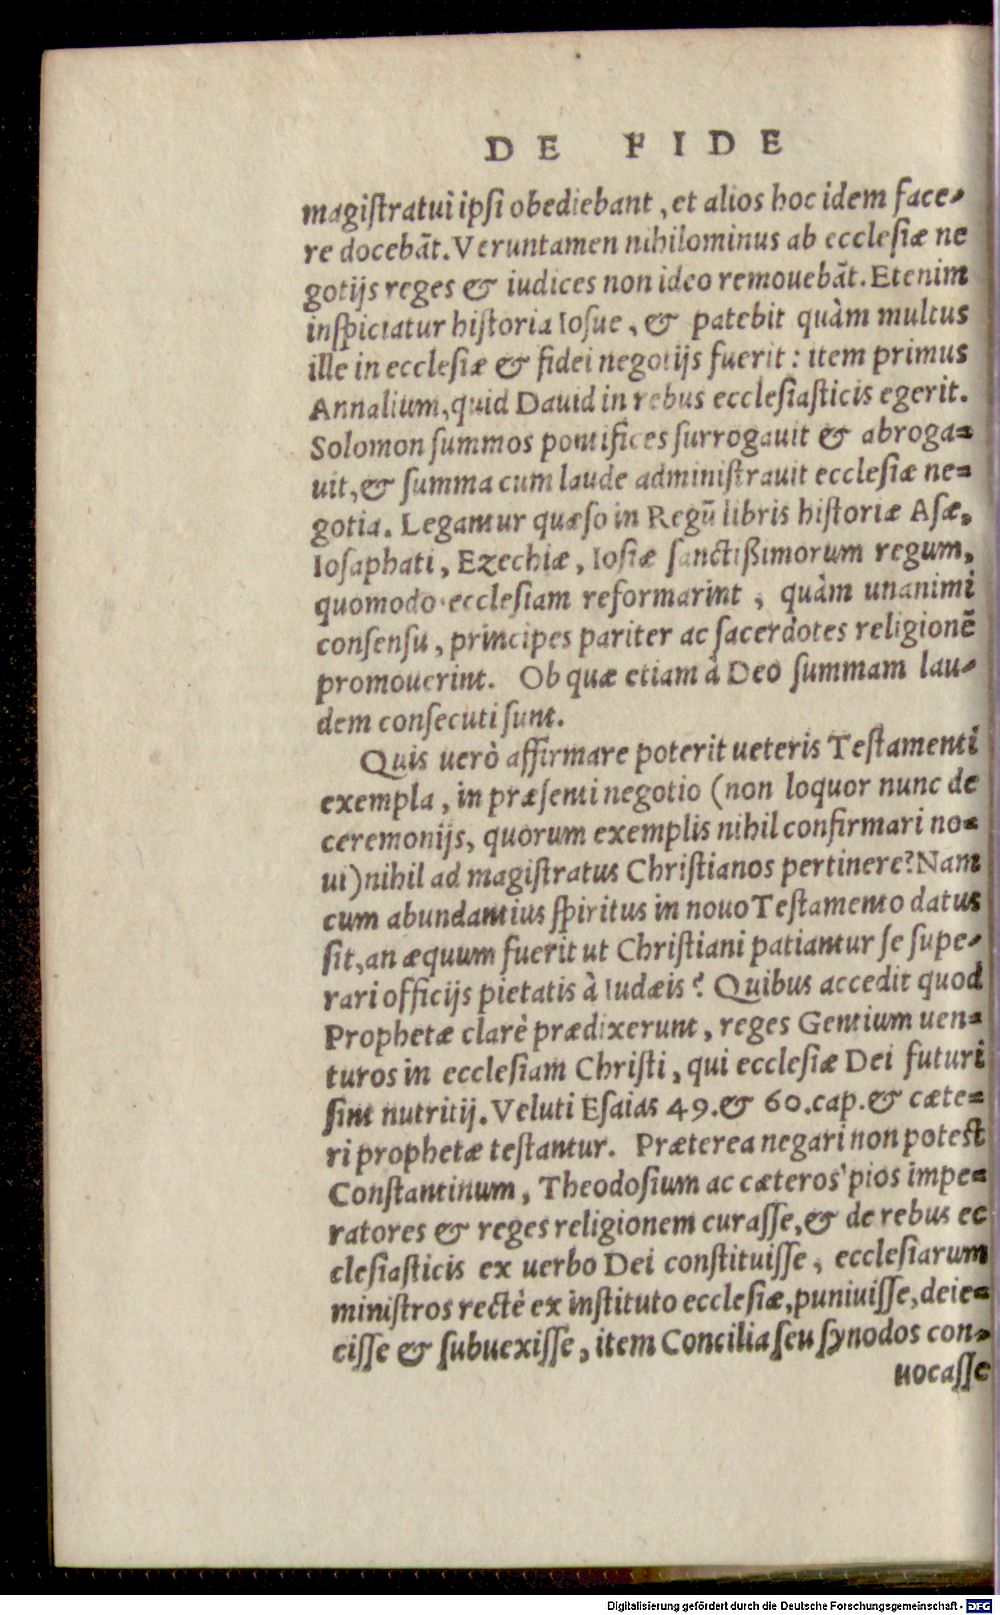 DE FIDE
magiſtratui ipſi obediebant, et alios hoc idem face-
re docebãt. Veruntamen nihilominus ab eccleſiæ ne
gotijs reges & iudices non ideo remouebãt. Etenim
inſpiciatur hiſtoria Ioſue, & patebit quàm multus
ille in eccleſiæ & fidei negotijs fuerit: item primus
Annalium, quid Dauid in rebus eccleſiaſticis egerit.
Solomon ſummos pontifices ſurrogauit & abroga-
uit, & ſumma cum laude adminiſtrauit eccleſiæ ne-
gotia. Legantur quæſo in Regũ libris hiſtoriæ Aſæ,
Ioſaphati, Ezechiæ, Ioſiæ ſanctißimorum regum,
quomodo eccleſiam reformarint, quàm unanimi
conſenſu, principes pariter ac ſacerdotes religionẽ
promouerint. Ob quæ etiam à Deo ſummam lau-
dem conſecuti ſunt.
Quis uerò affirmare poterit ueteris Teſtamenti
exempla, in præſenti negotio (non loquor nunc de
ceremonijs, quorum exemplis nihil confirmari no-
ui) nihil ad magiſtratus Chriſtianos pertinere? Nam
cum abundantius ſpiritus in nouo Teſtamento datus
ſit, an æquum fuerit ut Chriſtiani patiantur ſe ſupe-
rari officijs pietatis à Iudæis? Quibus accedit quod
Prophetæ clarè prædixerunt, reges Gentium uen-
turos in eccleſiam Chriſti, qui eccleſiæ Dei futuri
ſint nutritij. Veluti Eſaias 49. & 60. cap. & cæte-
ri prophetæ teſtantur. Præterea negari non poteſt
Conſtantinum, Theodoſium ac cæteros pios impe-
ratores & reges religionem curaſſe, & de rebus ec
cleſiaſticis ex uerbo Dei conſtituiſſe, eccleſiarum
miniſtros rectè ex inſtituto eccleſiæ, puniuiſſe, deie-
ciſſe & ſubuexiſſe, item Concilia ſeu ſynodos con-
uocaſſe
Digitalisierung gefördert durch die Deutsche Forschungsgemeinschaft - DFG